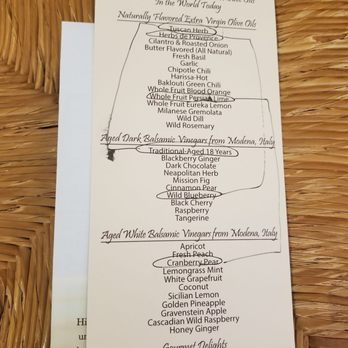 In the World Today
Naturally Flavored Extra Virgin Olive Oils
Tuscan Herb
Herbs de Provence
Cilantro & Roasted Onion
Butter Flavored (All Natural)
Fresh Basil
Garlic
Chipotle Chili
Harissa-Hot
Baklouti Green Chili
Whole Fruit Blood Orange
Whole Fruit Persian Lime
Whole Fruit Eureka Lemon
Milanese Gremolata
Wild Dill
Wild Rosemary
Aged Dark Balsamic Vinegars from Modena, Italy
Traditional-Aged 18 Years
Blackberry Ginger
Dark Chocolate
Neapolitan Herb
Mission Fig
Cinnamon Pear
Wild Blueberry
Black Cherry
Raspberry
Tangerine
Aged White Balsamic Vinegars from Modena, Italy
Apricot
Fresh Peach
Cranberry Pear
Lemongrass Mint
White Grapefruit
Coconut
Sicilian Lemon
Golden Pineapple
Gravenstein Apple
Cascadian Wild Raspberry
Honey Ginger
Gourmet Delights